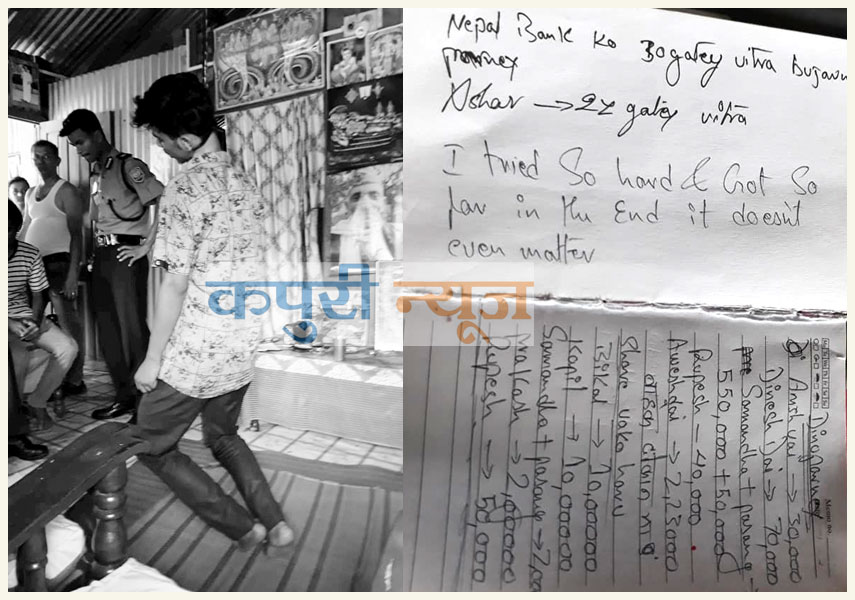 Nepal Bank ko 30 gatey vitra bujaune
Ashar → 22 gatey vitra
I tried So hard & Got So
far in the End it doesn't
even matter
कपुरी न्यूज
Dinuparney
Amsh kaji → 30,000
Dinesh Dai → 70,000
Samandha + parang -
550,000 + 50,000
Rupesh - 40,000
Aweshdai → 2,25000
Share vako haru
Bikal → 10,00000
Kapil → 10,00000
Samandha + parang → 2,00
Prakash → 2,00000
Rupesh → 50,000